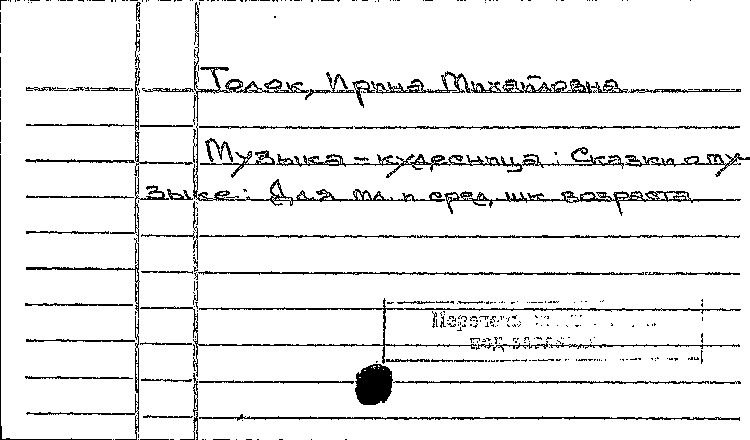 Толок, Ирина Михайловна
Музыка - кудесница : Сказки о му-
зыке : Для мл. и сред. шк. возраста
Перечень
под